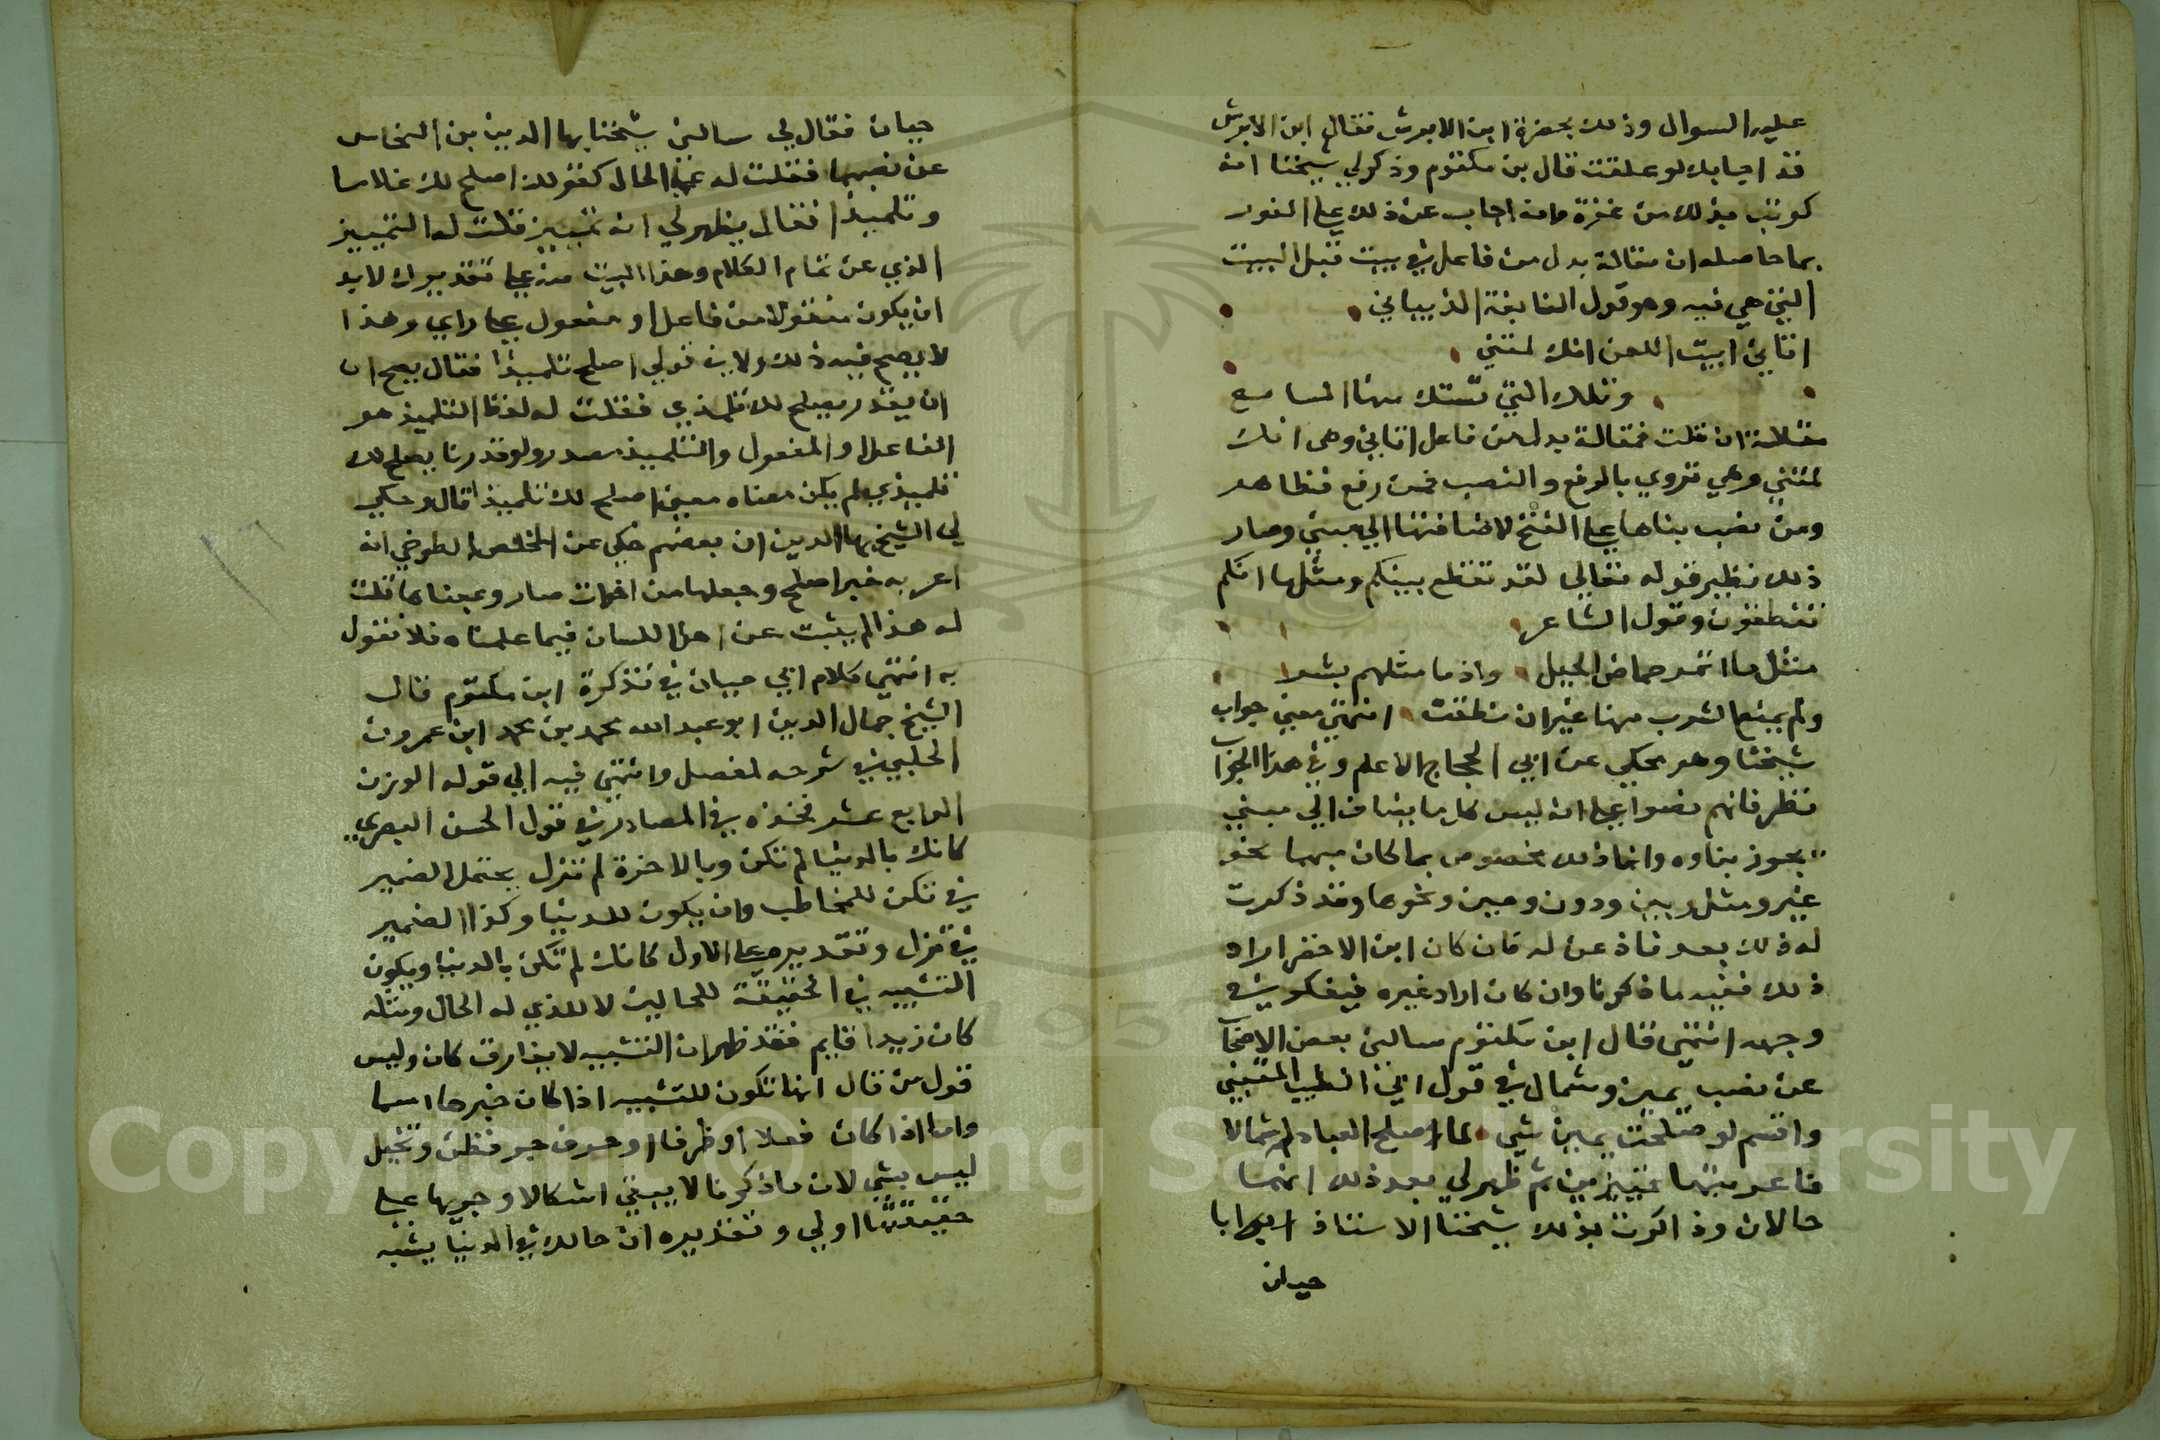 عليه السوال وذلك بحضرة ابن الابرش فقال ابن الابرش
قد اجابك لو علقت قال بن مكتوم وذكر لي شيخنا انه
كوتب بذلك من غزة وانه اجاب عن ذلك على الفور
بما حاصله ان مقالة بدل من فاعل في بيت قبل البيت
التي هي فيه وهو قول النابغة الذبياني
اتاني ابيت اللعن انك لمتني
وتلك التي تستك منها المسامع
مقالة ان قلت فمقالة بدل من فاعل اتاني وهي انك
لمتني وهي تروي بالرفع والنصب فمن رفع فظاهر
ومن نصب بناها على الفتح لاضافتها الي مبني وصار
ذلك نظير قوله تعالي لقد تقطع بينكم ومثلها انكم
تنطقون وقول الشاعر
مثل ما اثمر حماض الجبل واذ ما مثلهم بشر
ولم يمنع الشرب منها غير ان نطقت انتهي معني جواب
شيخنا وهو محكي عن ابي الحجاج الاعلم وفي هذا الجواب
نظر فانهم نصوا على ان ليس كل ما يضاف الي مبني
يجوز بناوه وانما ذلك مخصوص بما كان مبهما نحو
غير ومثل وبين ودون وحين ونحوها وقد ذكرت
له ذلك بعد فاذعن له فان كان ابن الاخضر اراد
ذلك ففيه ما ذكرنا وان كان اراد غيره فيفكر في
وجهه انتهي قال ابن مكتوم سالني بعض الاصحاب
عن نصب يمين وشمال في قول ابي الطيب المتنبي
واقسم لو صلحت يمين شي لما اصلح العباد له شمالا
فاعربتهما تمييزين ثم ظهر لي بعد ذلك انهما
حالان وذاكرت بذلك شيخنا الاستاذ ابا
حيان
حيان فقال لي سالني شيخنا بها الدين بن النحاس
عن نصبهما فقلت له على الحال كقولك اصلح لك غلاما
وتلميذا فقال يظهر لي انه تمييز قلت له التمييز
الذي عن تمام الكلام وهذا البيت منه على تقديرك لابد
ان يكون منقولا من فاعل او مفعول على راي وهذا
لا يصح فيه ذلك ولا في قولي اصلح تلميذا فقال يصح ان
ان يقدر يصلح لك تلمذي فقلت له لفظ التلميذ هو
الفاعل او المفعول والتلميذ مصدر ولو قدرنا يصلح لك
تلميذي لم يكن معناه معني اصلح لك تلميذا قال وحكي
لي الشيخ بها الدين ان بعضهم حكي عن المخلص الطوخي انه
اعربه خبر اصلح وجعلها من اخوات صار وعجبنا قلت
له هذا لم يثبت عن اهل اللسان فيما علمناه فلا نقول
به انتهي كلام ابي حيان في تذكرة ابن مكتوم قال
الشيخ جمال الدين ابو عبد الله محمد بن محمد ابن عمرون
الحلبي في شرحه لمفصل وانتهي فيه الي قوله الوزن
الرابع عشر في المصادر في قول الحسن البصري
كانك بالدنيا لم تكن وبالاخرة لم تزل يحتمل الضمير
في تكن للمخاطب وان يكون للدنيا وكذا الضمير
في تزل وتقديره على الاول كانك لم تكن بالدنيا ويكون
التشبيه في الحقيقة للحالين لا للذي له الحال ومثله
كان زيدا قايم فقد ظهر ان التشبيه لا يفارق كان وليس
قول من قال انها تكون للتشبيه اذا كان خبرها اسما
واما اذا كان فعلا او ظرفا او حرف جر فظن وتخيل
ليس بشي لان ما ذكرنا لا يبقي اشكالا وجريها على
حقيقتها اولي وتقديره ان حالك في الدنيا يشبه
Copyright © King Saud University